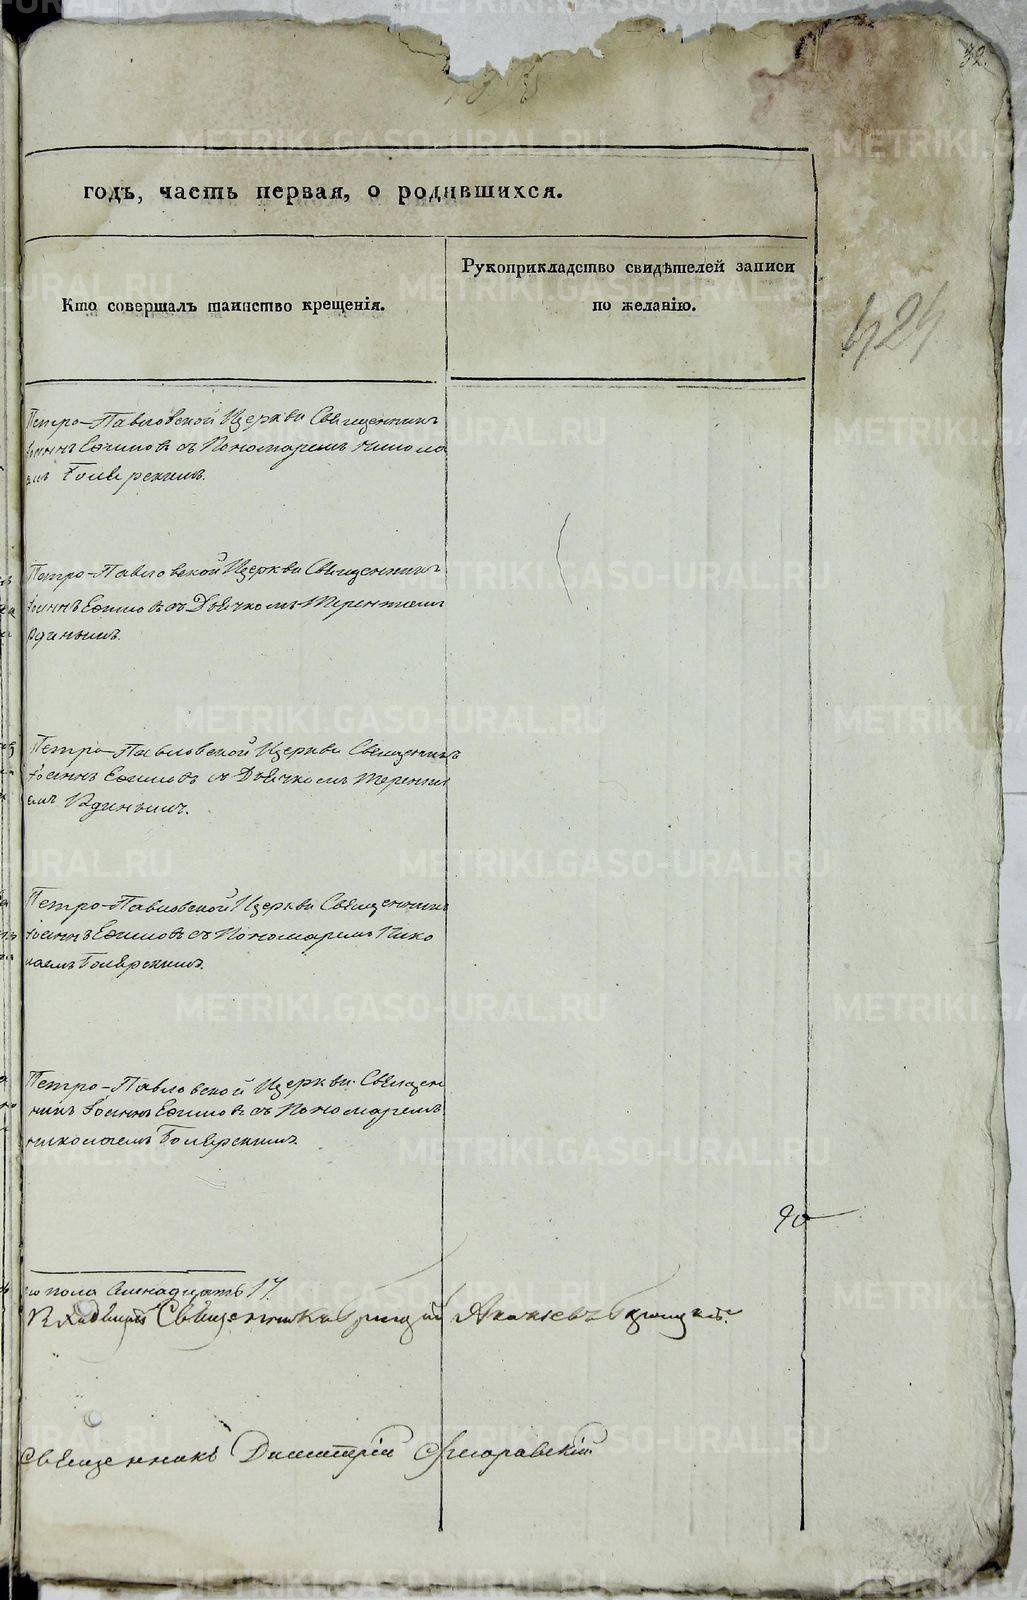 32.
годъ, часть первая, о родившихся.
Кто совершалъ таинство крещенія.
Рукоприкладство свидѣтелей записи
по желанію.
424
Петро-Павловской Церкви Священникъ
Іоаннъ Ефимовъ съ Пономаремъ Никола
емъ Боярскимъ.
Петро-Павловской Церкви Священникъ
Іоаннъ Ефимовъ съ Дьячкомъ Терентіемъ
Петро-Павловской Церкви Священникъ
Іоаннъ Ефимовъ съ Дьячкомъ Теренті
емъ
Петро-Павловской Церкви Священникъ
Іоаннъ Ефимовъ съ Пономаремъ Нико
лаемъ Боярскимъ.
Петро-Павловской Церкви Священ
никъ Іоаннъ Ефимовъ съ Пономаремъ
Николаемъ Боярскимъ.
го пола Семнадцать 17.
Священникъ
Священникъ Димитрій Флоравскій
METRIKI.GASO-URAL.RU